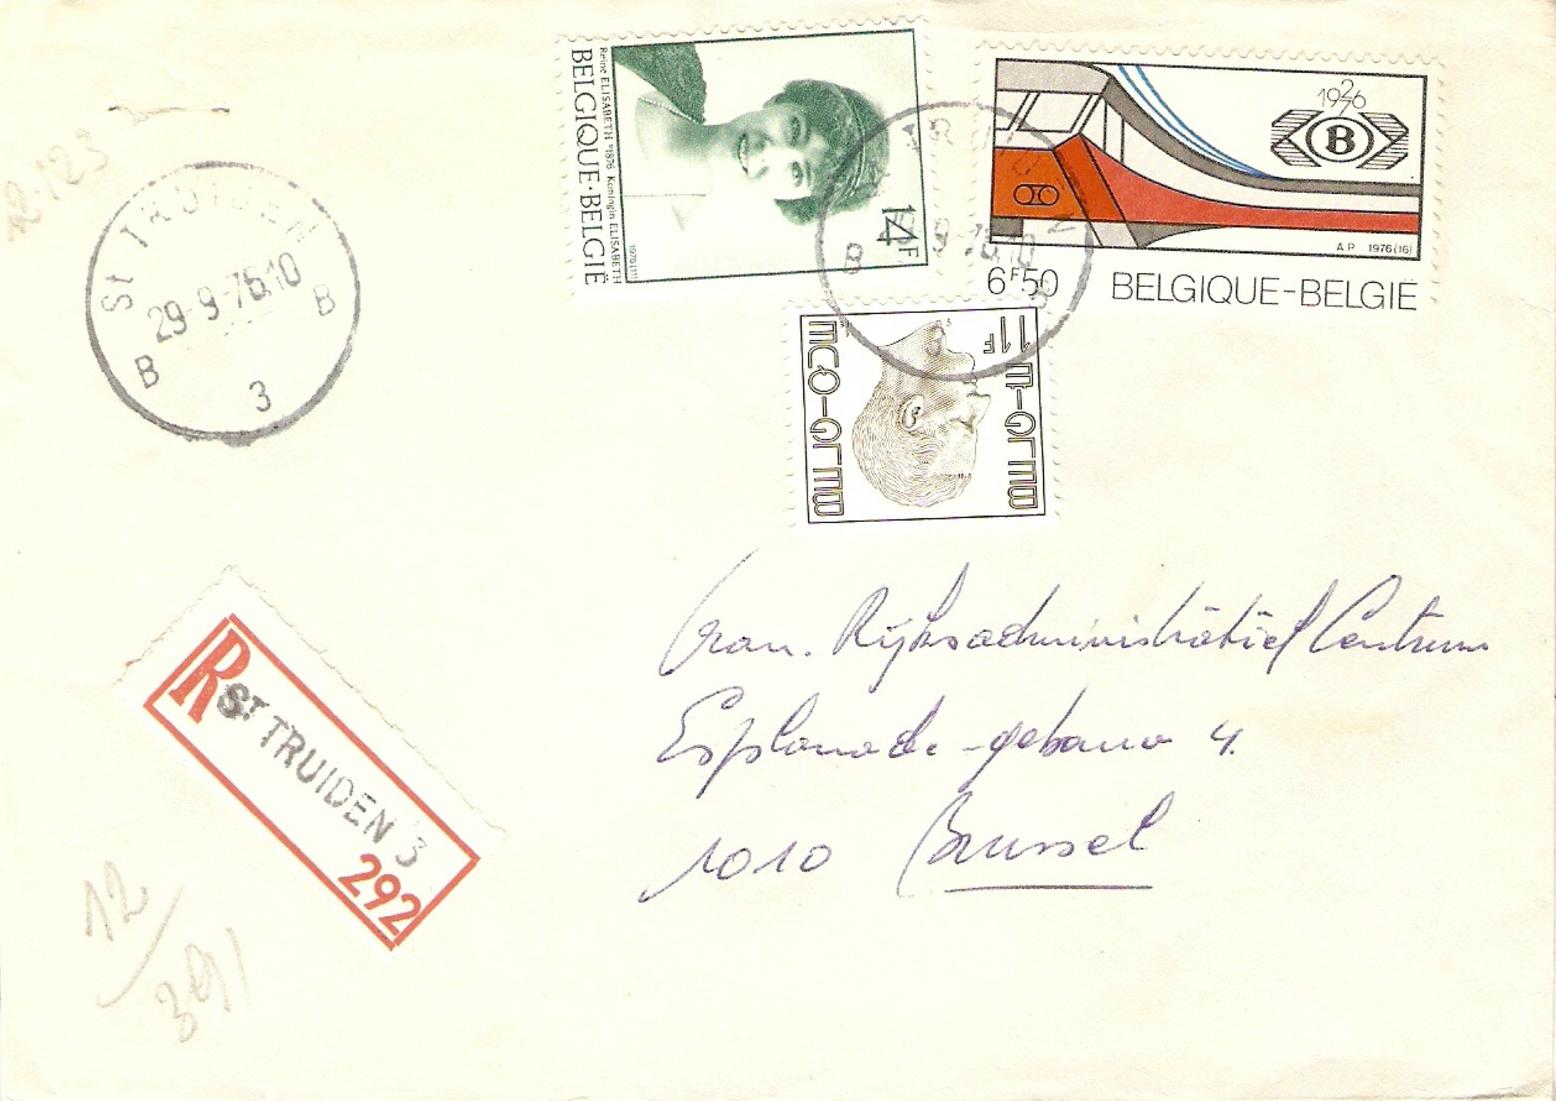 BELGIQUE·BELGIË
Reine ELISABETH °1876 Koningin ELISABETH
1976(11)
14F
1926
1976
B
A.P. 1976(16)
6F50
BELGIQUE-BELGIË
BELGIQUE
BELGIË
11F
St TRUIDEN
29-9-76.10
B B
3
22.123
Rijksadministratief Centrum
Esplanade-gebouw 4.
1010 Brussel
R ST TRUIDEN 3
292
12/391